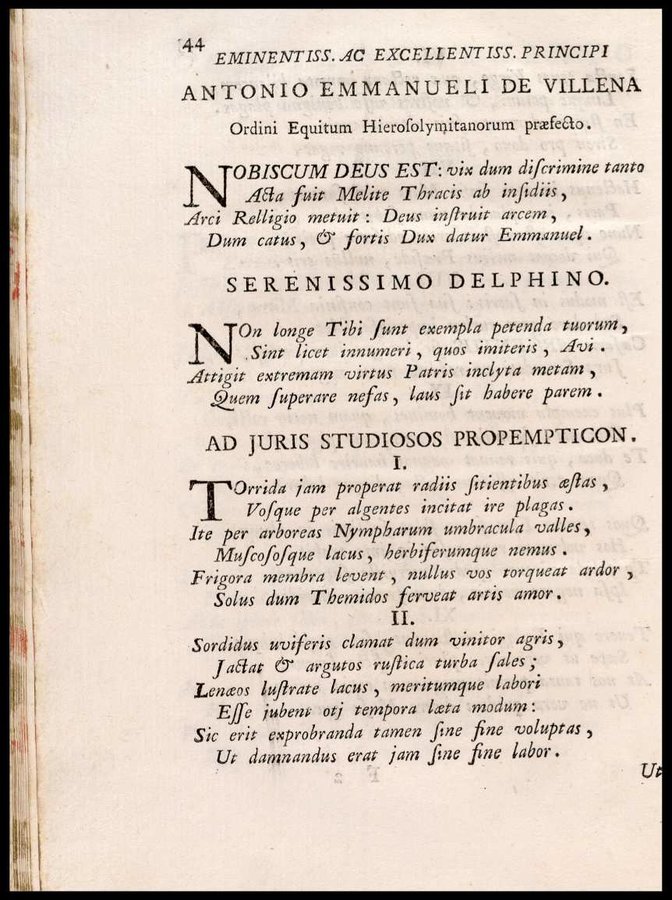 44
EMINENTISS. AC EXCELLENTISS. PRINCIPI
ANTONIO EMMANUELI DE VILLENA
Ordini Equitum Hieroſolymitanorum præfecto.
NOBISCUM DEUS EST: vix dum diſcrimine tanto
Acta fuit Melite Thracis ab inſidiis,
Arci Relligio metuit: Deus inſtruit arcem,
Dum catus, & fortis Dux datur Emmanuel.
SERENISSIMO DELPHINO.
NOn longe Tibi ſunt exempla petenda tuorum,
Sint licet innumeri, quos imiteris, Avi.
Attigit extremam virtus Patris inclyta metam,
Quem ſuperare nefas, laus ſit habere parem.
AD JURIS STUDIOSOS PROPEMPTICON.
I.
TOrrida jam properat radiis ſitientibus æſtas,
Voſque per algentes incitat ire plagas.
Ite per arboreas Nympharum umbracula valles,
Muſcoſoſque lacus, herbiferumque nemus.
Frigora membra levent, nullus vos torqueat ardor,
Solus dum Themidos ferveat artis amor.
II.
Sordidus uviferis clamat dum vinitor agris,
Jactat & argutos ruſtica turba ſales;
Lenæos luſtrate lacus, meritumque labori
Eſſe jubent otj tempora læta modum:
Sic erit exprobranda tamen ſine fine voluptas,
Ut damnandus erat jam ſine fine labor.
Ut